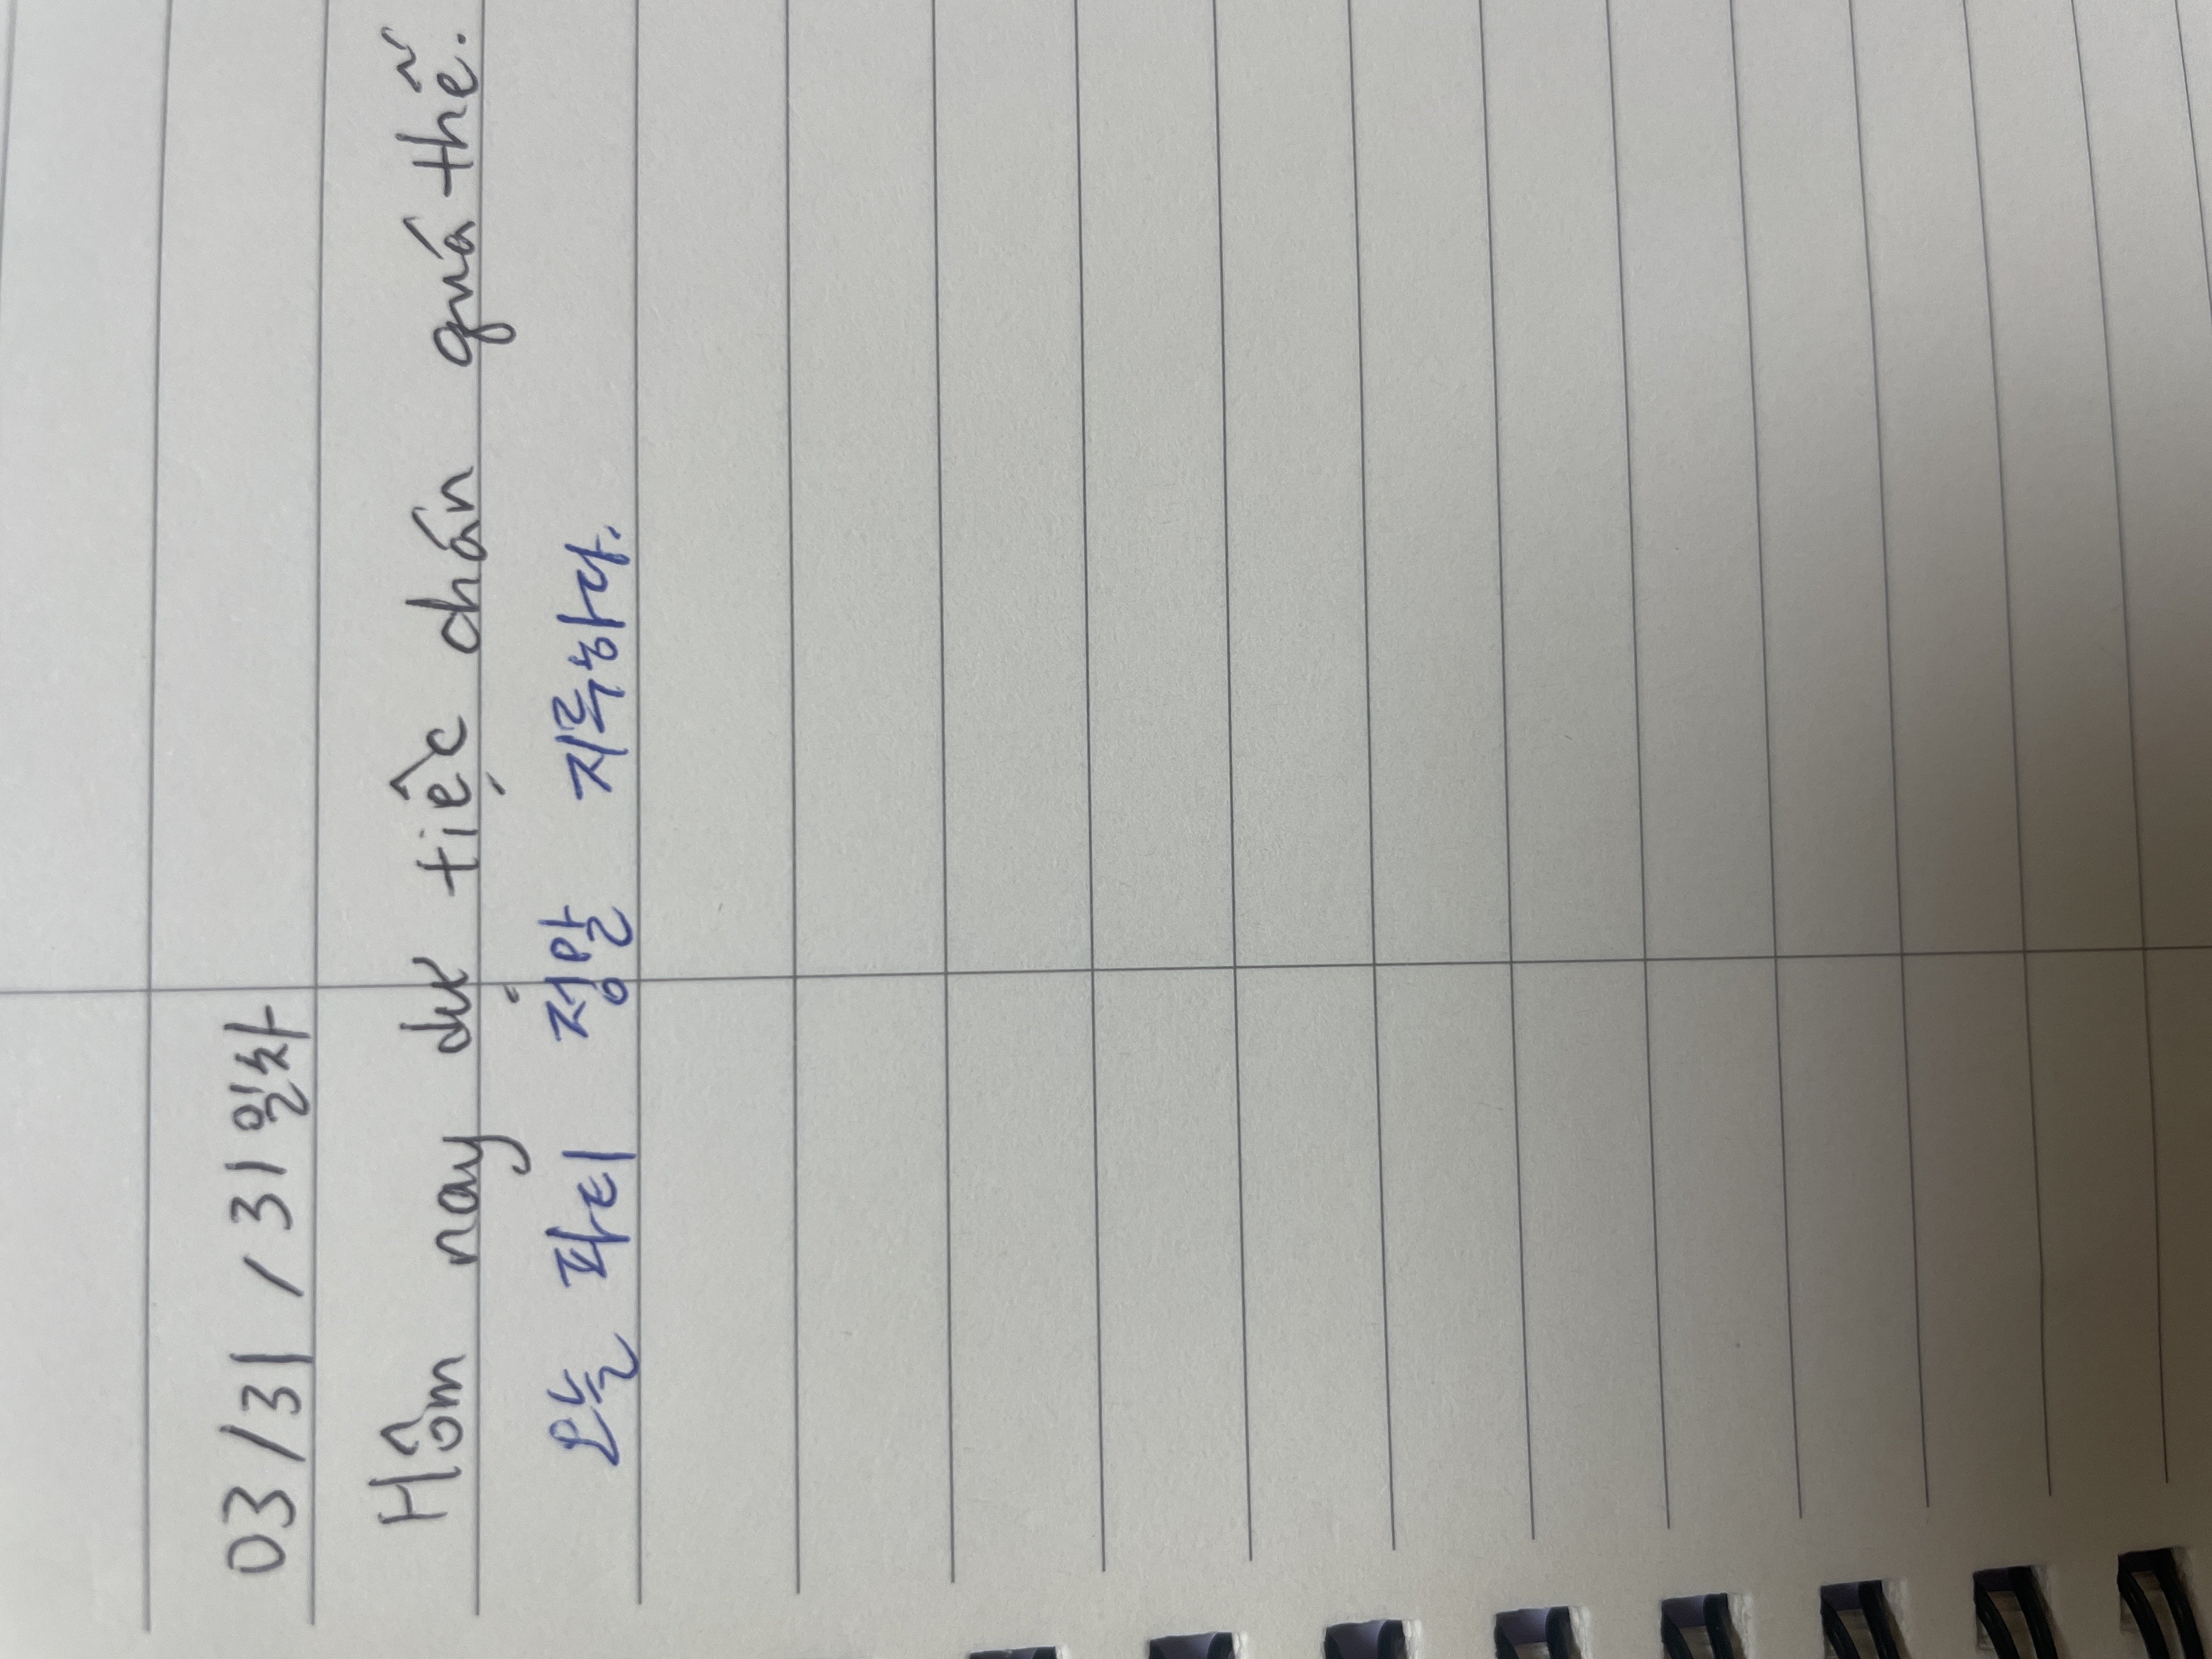 03/31 / 31일차
Hôm nay dự tiệc chán quá thể.
오늘 파티 정말 지루하다.